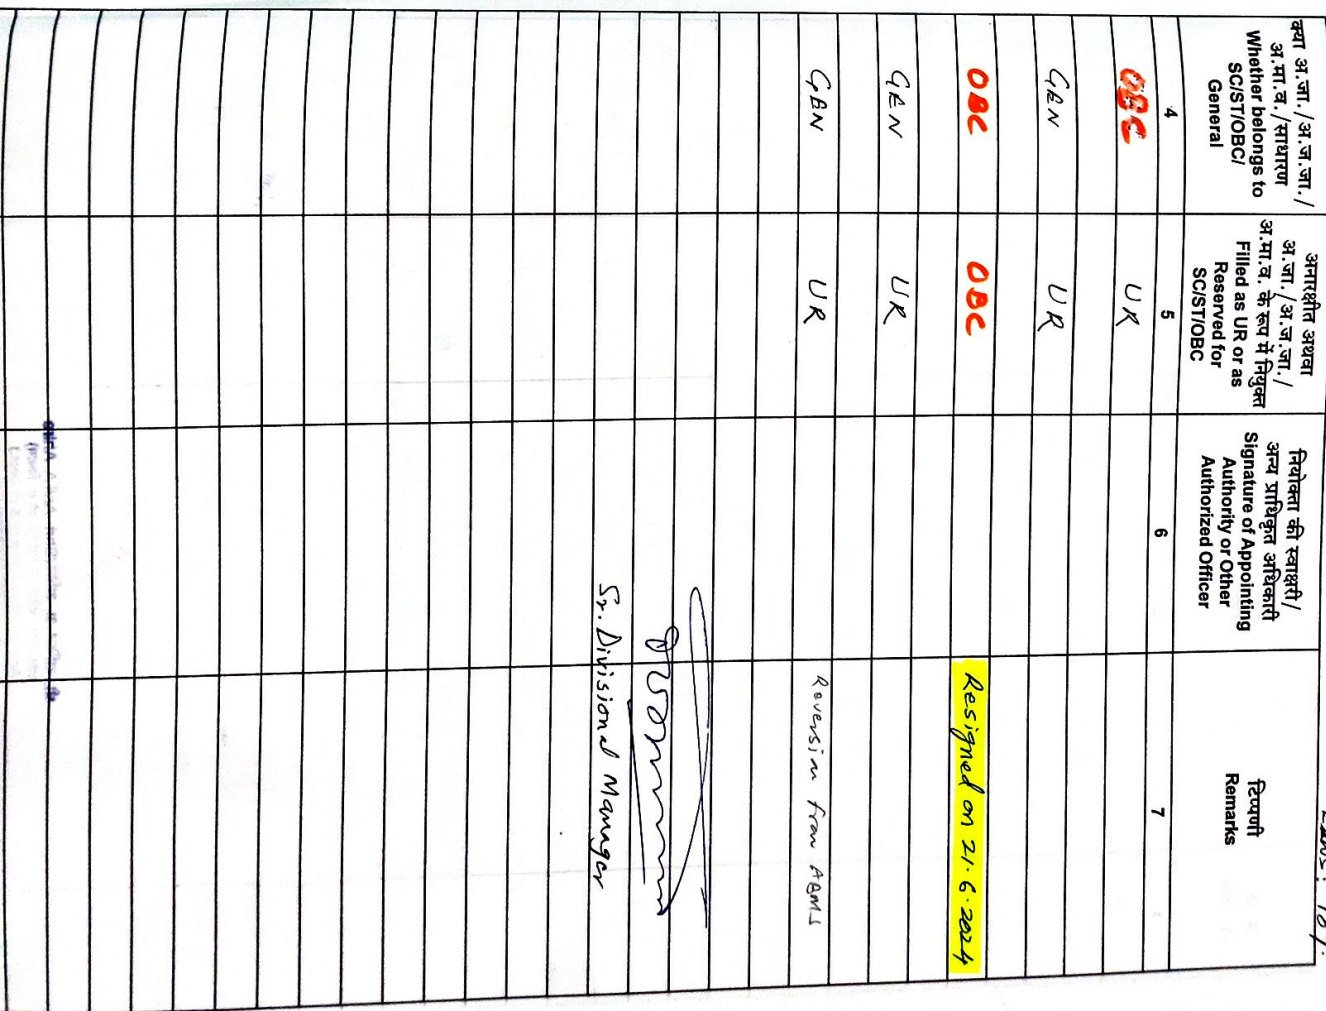 क्या अ.जा./अ.ज.जा./
अ.मा.व./साधारण
Whether belongs to
SC/ST/OBC/
General
अनारक्षीत अथवा
अ.जा./अ.ज.जा./
अ.मा.व. के रूप में नियुक्त
Filled as UR or as
Reserved for
SC/ST/OBC
नियोक्ता की स्वाक्षरी/
अन्य प्राधिकृत अधिकारी
Signature of Appointing
Authority or Other
Authorized Officer
टिप्पणी
Remarks
4 5 6 7
OBC UR
GEN UR
OBC OBC Resigned on 21.6.2024
GEN UR
GEN UR Reversion from ABMS
Sr. Divisional Manager